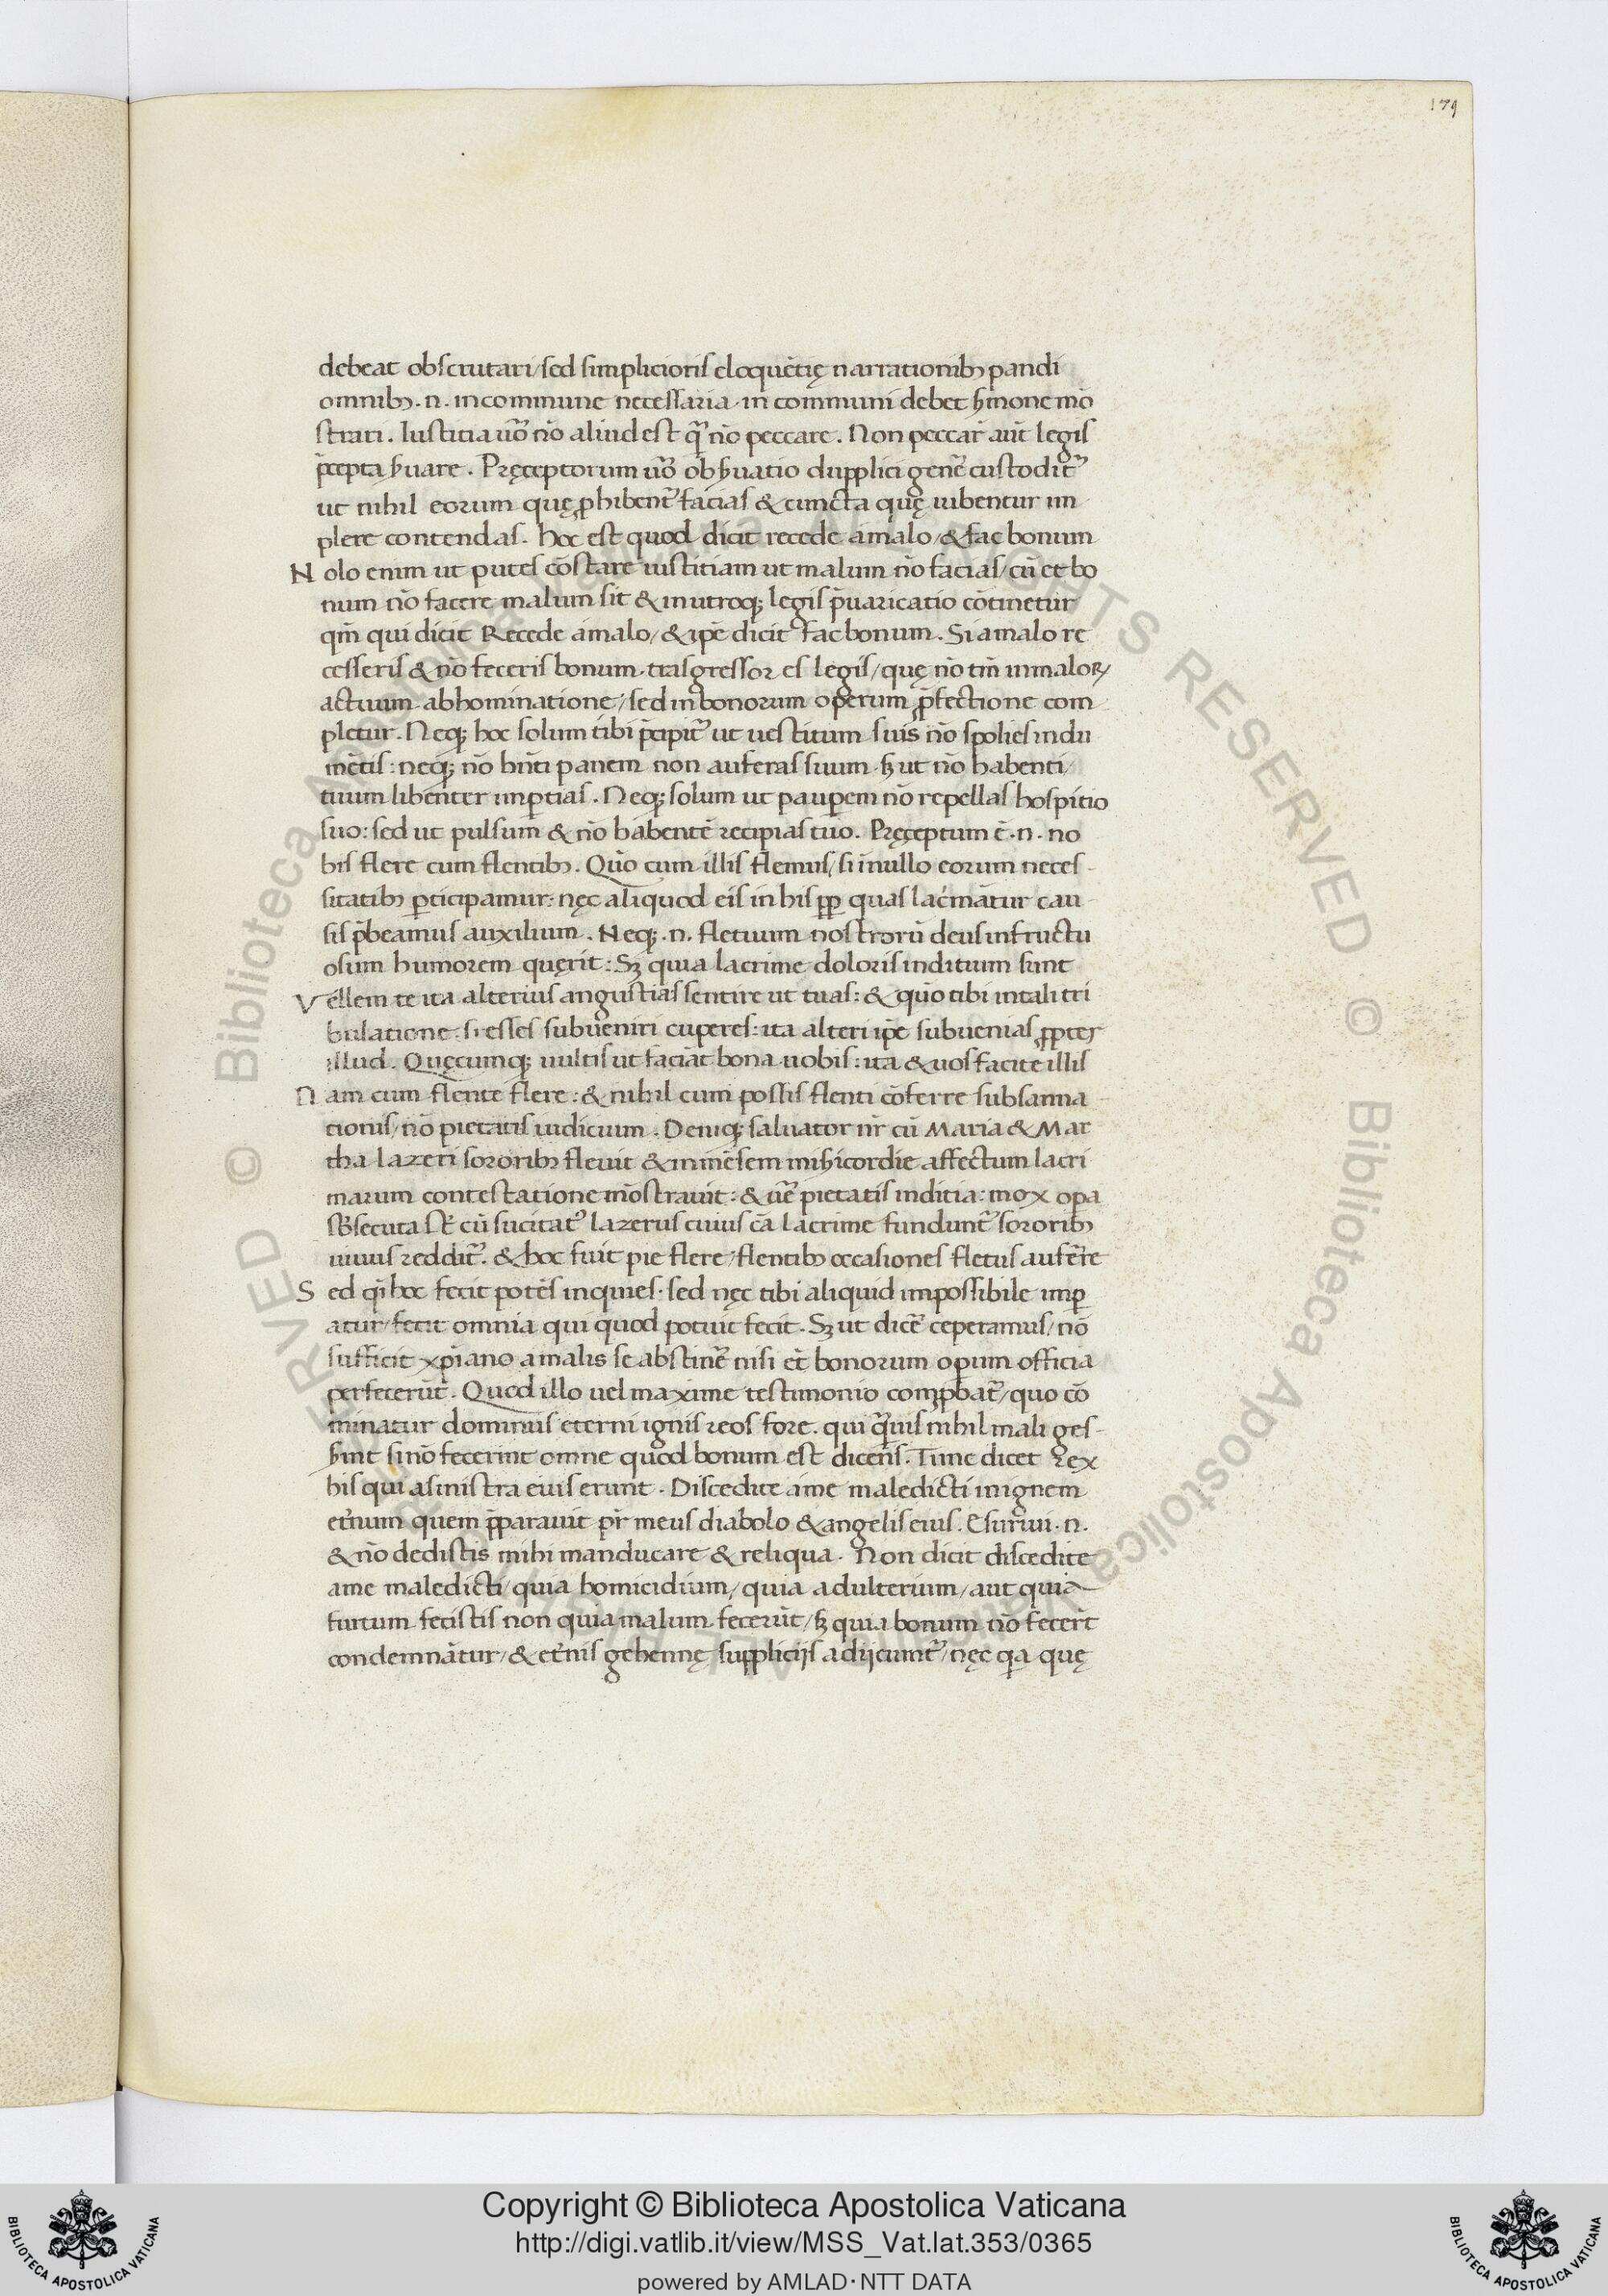 179
debeat obscrutari/ sed simplicioris eloquētię narrationibꝫ pandi
omnibꝫ .n. in commune necessaria in communi debet ẜmone mō
strari. Iustitia u̅o nō aliud est q̄ꝫ nō peccare. Non peccar̄ aūt legis
p̄cepta ẜuare. Pręceptorum u̅o obẜuatio dupplici gen̄e custodit᷑
ut nihil eorum quę ꝓhibent᷑ facias & cuncta quę iubentur im
plere contendas. hoc est quod dicit recede amalo/ & fac bonum
Nolo enim ut putes cōstare iustitiam ut malum nō facias/ cū et bo
num nō facere malum sit & in utroqꝫ legis p̄uaricatio cōtinetur
qm̄ qui dicit Recede amalo/ & ip̄e dicit fac bonum. Si amalo re
cesseris & nō feceris bonum trāsgressor es legis/ quę nō tm̄ in maloꝝ
actuum abhominatione/ sed in bonorum operum ꝑfectione com
pletur. Neqꝫ hoc solum tibi p̄cipit᷑ ut uestitum suis nō spolies indu
mētis: neqꝫ nō hn̄ti panem non auferas suum sꝫ ut nō habenti
tuum libenter imꝑtias. Neqꝫ solum ut pauꝑem nō repellas hospitio
suo: sed ut pulsum & nō habentē recipias tuo. Pręceptum ē .n. no
bis flere cum flentibꝫ. Quō cum illis flemus/ si in nullo eorum neces-
sitatibꝫ ꝑticipamur: nęc aliquod eis in his ꝓp quas lac̄mātur cau
sis p̄beamus auxilium. Neqꝫ .n. fletuum nostrorū deus infructu
osum humorem quęrit: Sꝫ quia lacrime doloris inditium sunt
Vellem te ita alterius angustias sentire ut tuas: & quō tibi in tali tri
bulatione si esses subueniri cuperes: ita alteri ip̄e subuenias ꝓpter
illud. Quęcumqꝫ uultis ut faciāt bona uobis: ita & uos facite illis
Nam cum flente flere: & nihil cum possis flenti cōferre subsanna-
tionis/ nō pietatis iudicium. Deniqꝫ saluator nr̄ cū Maria & Mar
tha Lazeri sororibꝫ fleuit & inmēsem miẜicordie affectum lacri
marum contestatione mōstrauit: & ue᷑ pietatis inditia: mox oꝑa
sb̄secuta st̄ cū sucitat᷑ lazerus cuius cā lacrime fundunt᷑ sororibꝫ
uiuus reddit᷑. & hoc fuit pie flere/ flentibꝫ occasiones fletus aufer̄e
Sed qi hoc fecit potēs inquies. sed nęc tibi aliquid impossibile imꝑ
atur/ fecit omnia qui quod potuit fecit. Sꝫ ut dicer̄ ceperamus/ nō
sufficit xp̄iano a malis se abstiner̄ nisi et bonorum oꝑum officia
perfecerūt. Quod illo uel maxime testimonio comꝓbat᷑/ quo cō
minatur dominus eterni ignis reos fore. qui q̄ꝫuis nihil mali ges-
ẜint si nō fecerint omne quod bonum est dicens. Tunc dicet Rex
his qui asinistra eius erunt. Discedite ame maledicti in ignem
et̄num quem p̄parauit pr̄ meus diabolo & angelis eius. Esuriui .n.
& nō dedistis mihi manducare & reliqua. Non dicit discedite
ame maledicti/ quia homicidium/ quia adulterium/ aut quia
furtum fecistis non quia malum fecerūt/ sꝫ quia bonum nō fecer̄t
condemnātur/ & et̄nis gehennę supplicijs adijciunt᷑/ nęc qa quę
Copyright © Biblioteca Apostolica Vaticana
http://digi.vatlib.it/view/MSS_Vat.lat.353/0365
powered by AMLAD·NTT DATA